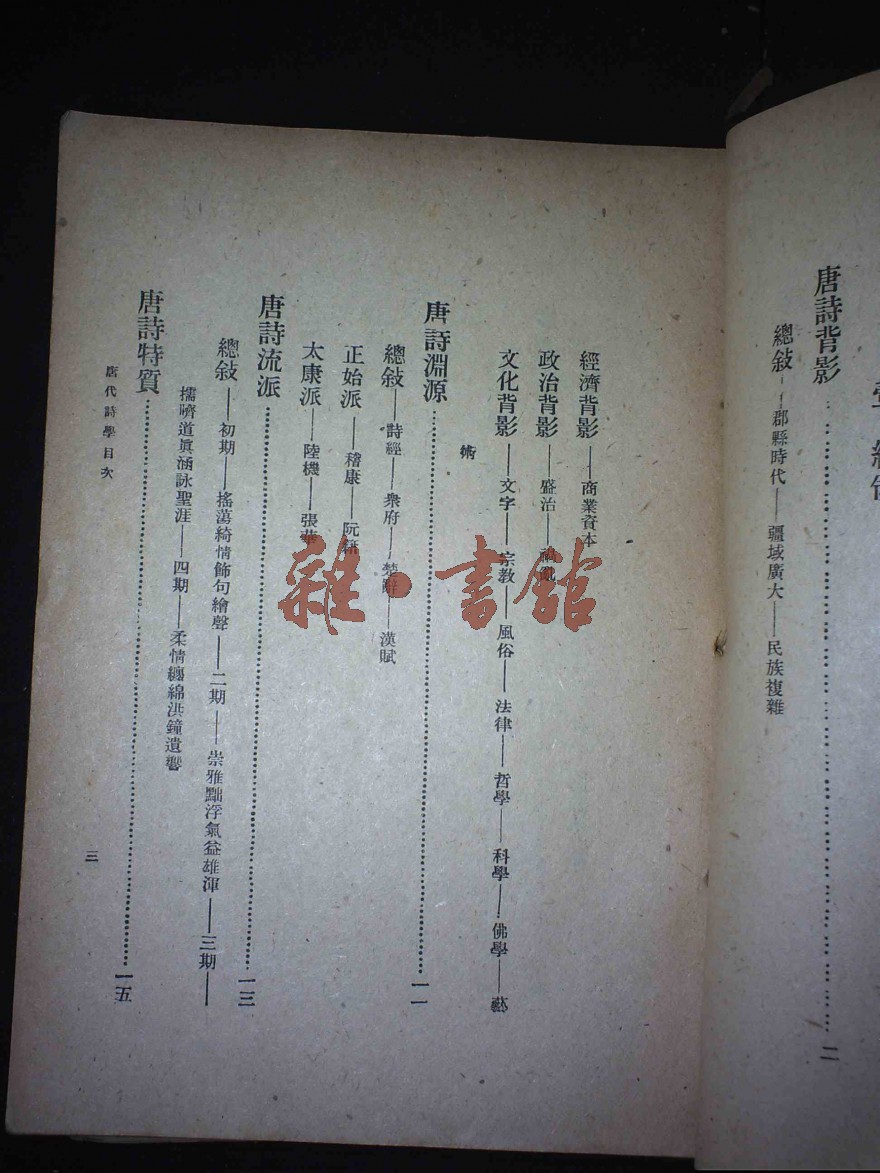 唐詩背影……二
總敍——郡縣時代——疆域廣大——民族複雜
經濟背影——商業資本
政治背影——盛治——禍亂
文化背影——文字——宗教——風俗——法律——哲學——科學——佛學——藝
術
唐詩淵源……一一
總敍——詩經——樂府——楚辭——漢賦
正始派——稽康——阮籍
太康派——陸機——張華
唐詩流派……一三
總敍——初期——搖蕩綺情飾句繪聲——二期——崇雅黜浮氣益雄渾——三期——
擩嚌道眞涵詠聖涯——四期——柔情纏綿洪鐘遺響
唐詩特質……一五
唐代詩學目次
三
雜·書館